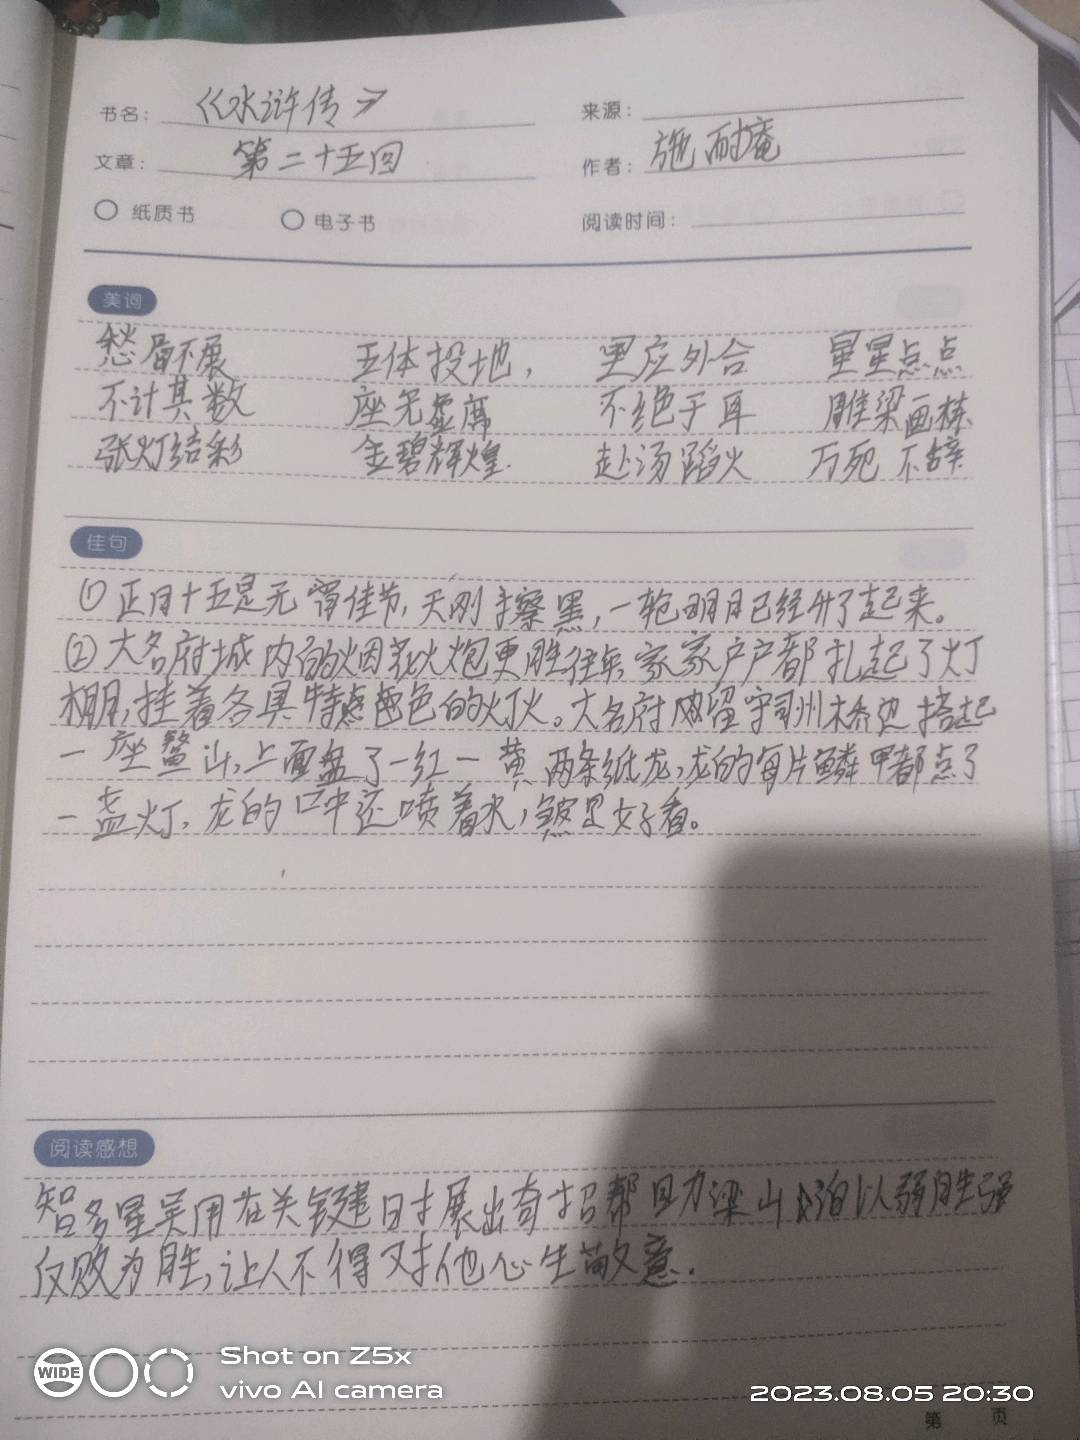 书名： 《水浒传》 来源：
文章： 第二十五回 作者： 施耐庵
纸质书 电子书 阅读时间：
美词
愁眉不展 五体投地， 里应外合 星星点点
不计其数 座无虚席 不绝于耳 雕梁画栋
张灯结彩 金碧辉煌. 赴汤蹈火 万死不辞
佳句
①正月十五是元宵佳节,天刚擦黑,一轮明月已经升了起来。
②大名府城内的烟花火炮更胜往年,家家户户都扎起了灯
棚,挂着各具特点的灯火。大名府内留守司州桥边搭起
一座鳌山,上面盘了一红一黄两条纸龙,龙的每片鳞甲都点了
一盏灯,龙的口中还喷着水,煞是好看。
阅读感想
智多星吴用在关键时展出奇招帮助梁山泊以弱胜强
反败为胜,让人不得对他心生敬意.
WIDE Shot on Z5x
vivo AI camera
2023.08.05 20:30
第 页